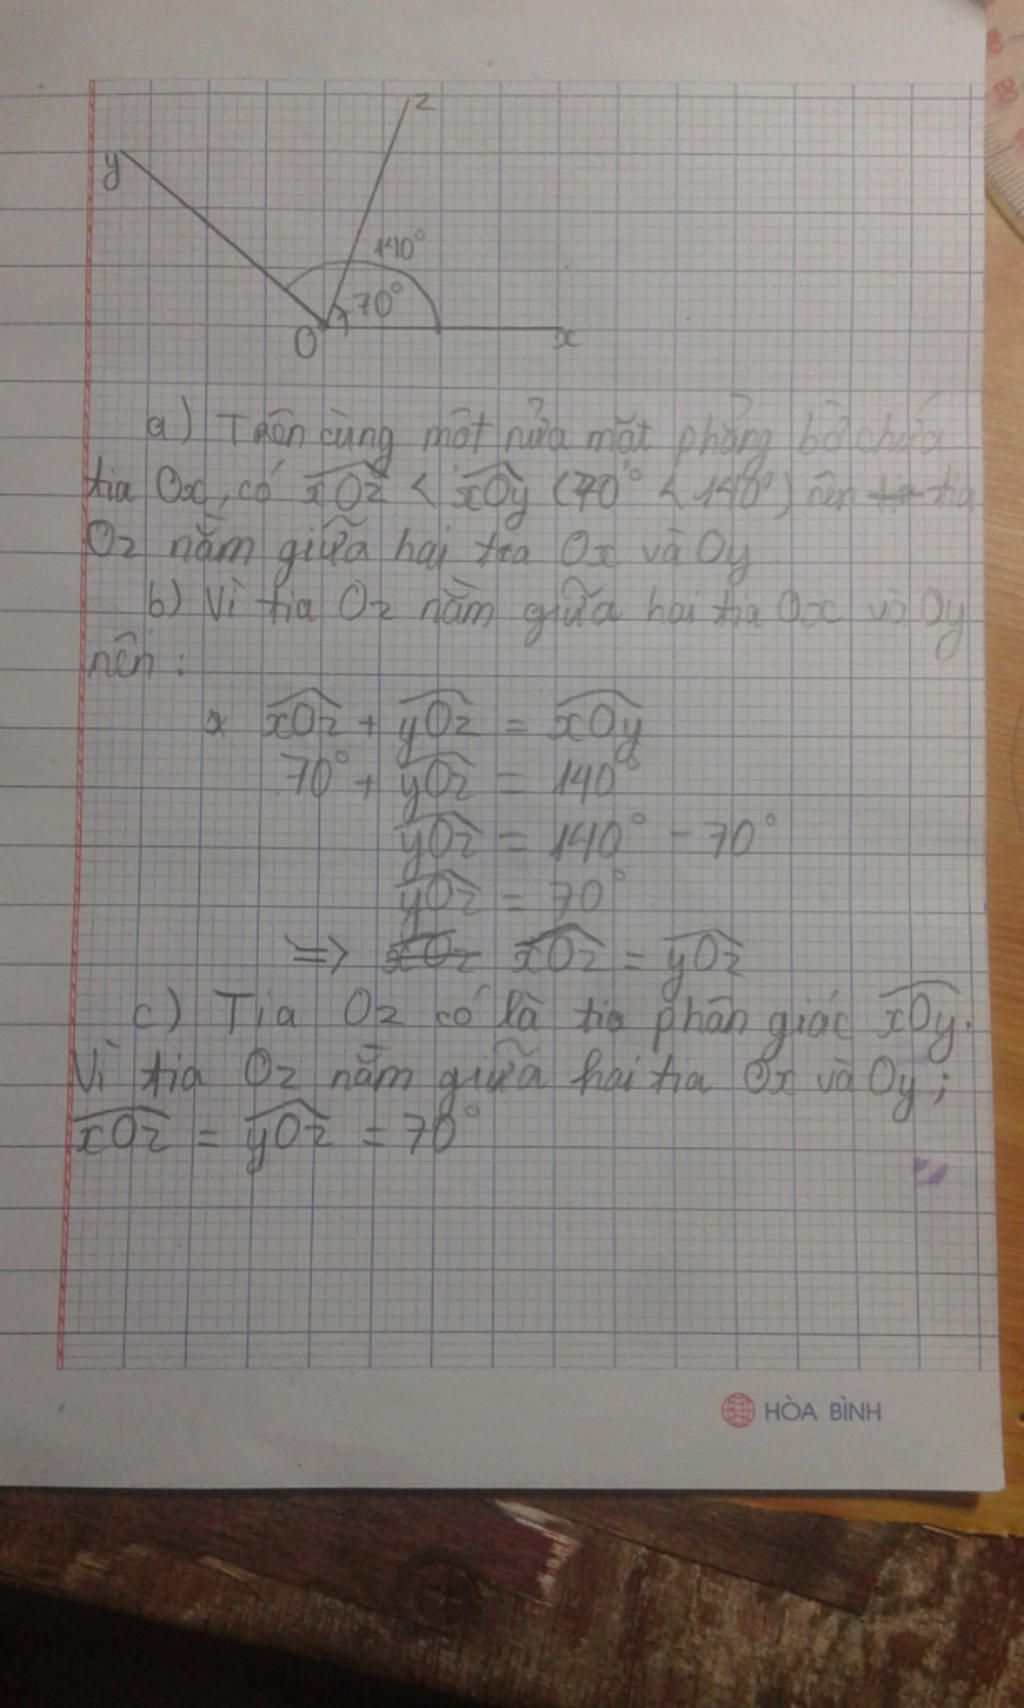 z
y
140°
70°
O
x
a) Trên cùng một nửa mặt phẳng bờ chứa
tia Ox, có xOz < xOy (70° < 140°) nên tia
Oz nằm giữa hai tia Ox và Oy
b) Vì tia Oz nằm giữa hai tia Ox và Oy
nên :
* xOz + yOz = xOy
70° + yOz = 140°
yOz = 140° - 70°
yOz = 70°
=> xOz xOz = yOz
c) Tia Oz có là tia phân giác xOy.
Vì tia Oz nằm giữa hai tia Ox và Oy ;
xOz = yOz = 70°
HÒA BÌNH